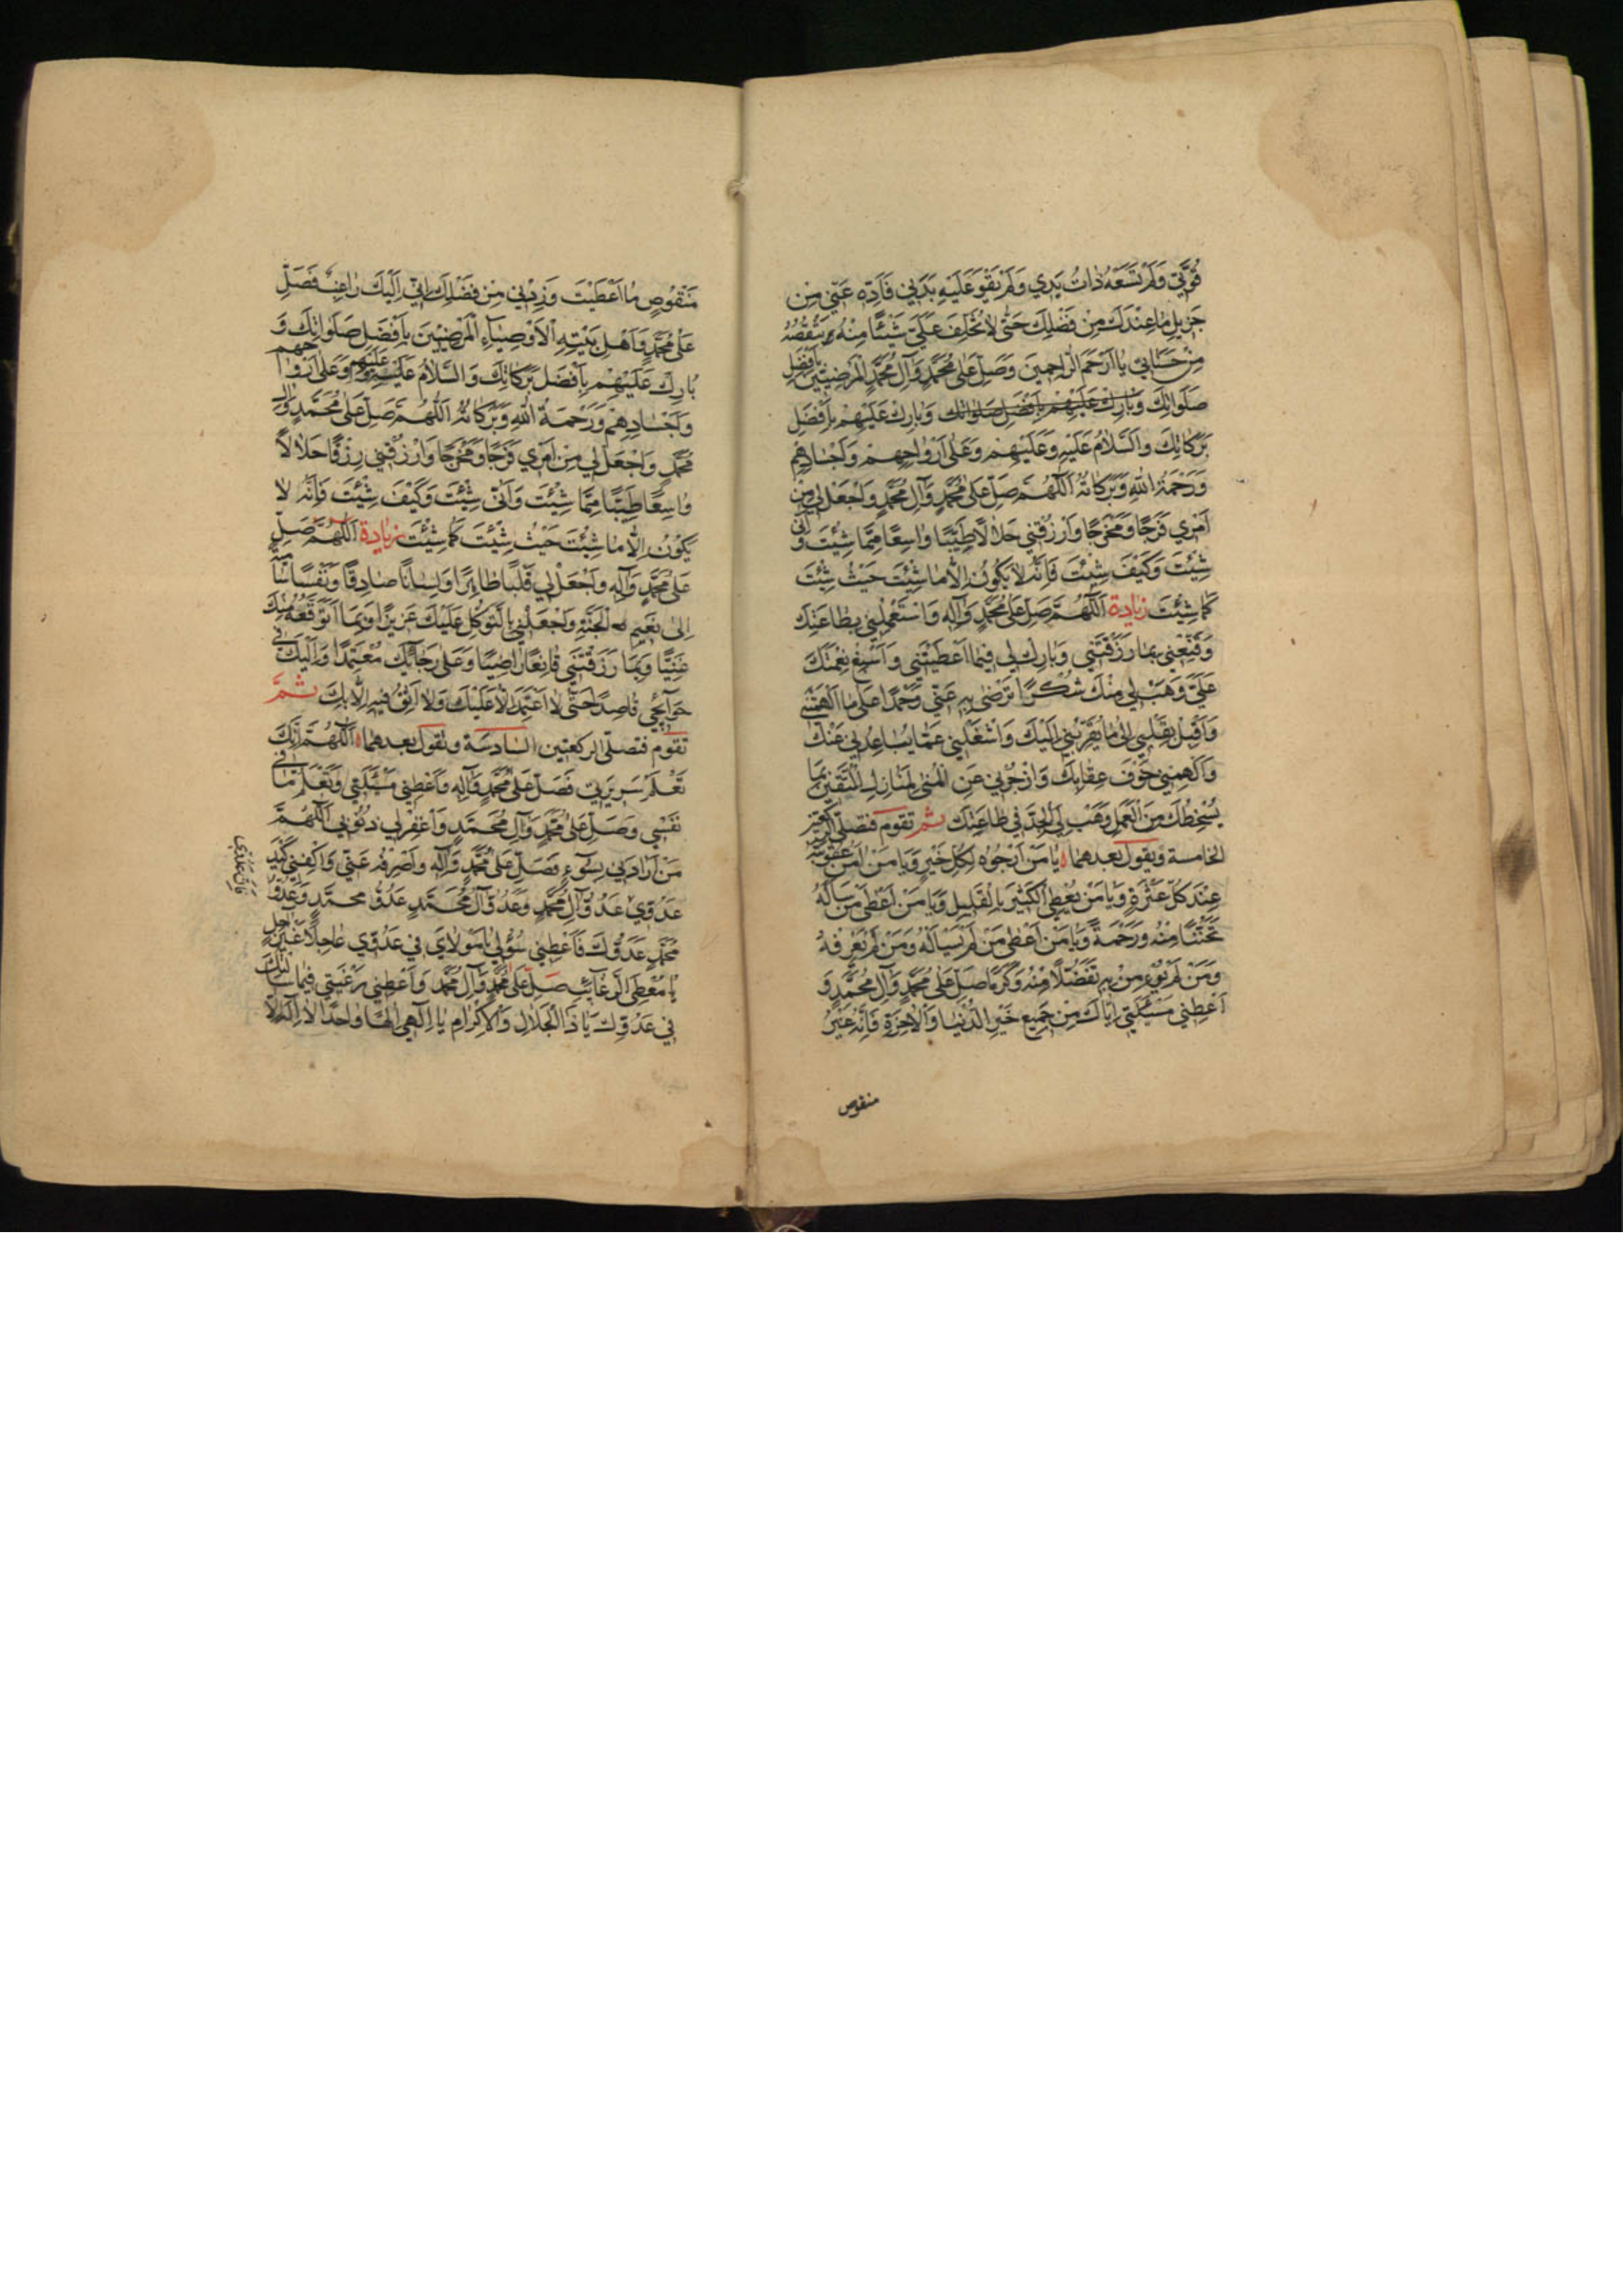 قُوَّتِي وَلَمْ تَسَعْهُ ذَاتُ يَدِي وَلَمْ يَقْوَ عَلَيْهِ بَدَنِي فَأَدِّهِ عَنِّي مِنْ
جَزِيلِ مَا عِنْدَكَ مِنْ فَضْلِكَ حَتَّى لَا تُخَلِّفَ عَلَيَّ شَيْئًا مِنْهُ تَنْقُصُهُ
مِنْ حَسَنَاتِي يَا أَرْحَمَ الرَّاحِمِينَ وَصَلِّ عَلَى مُحَمَّدٍ وَآلِ مُحَمَّدٍ الْمَرْضِيِّينَ بِأَفْضَلِ
صَلَوَاتِكَ وَبَارِكْ عَلَيْهِمْ بِأَفْضَلِ صَلَوَاتِكَ وَبَارِكْ عَلَيْهِمْ بِأَفْضَلِ
بَرَكَاتِكَ وَالسَّلَامُ عَلَيْهِ وَعَلَيْهِمْ وَعَلَى أَرْوَاحِهِمْ وَأَجْسَادِهِمْ
وَرَحْمَةُ اللهِ وَبَرَكَاتُهُ اَللّٰهُمَّ صَلِّ عَلَى مُحَمَّدٍ وَآلِ مُحَمَّدٍ وَاجْعَلْ لِي مِنْ
أَمْرِي فَرَجًا وَمَخْرَجًا وَارْزُقْنِي حَلَالًا طَيِّبًا وَاسِعًا مِمَّا شِئْتَ وَأَنَّى
شِئْتَ وَكَيْفَ شِئْتَ فَإِنَّهُ لَا يَكُونُ إِلَّا مَا شِئْتَ حَيْثُ شِئْتَ
كَمَا شِئْتَ زيادة اَللّٰهُمَّ صَلِّ عَلَى مُحَمَّدٍ وَآلِهِ وَاسْتَعْمِلْنِي بِطَاعَتِكَ
وَقَنِّعْنِي بِمَا رَزَقْتَنِي وَبَارِكْ لِي فِيمَا أَعْطَيْتَنِي وَأَسْبِغْ نِعْمَتَكَ
عَلَيَّ وَهَبْ لِي مِنْكَ شُكْرًا تَرْضَى بِهِ عَنِّي وَحَمْدًا عَلَى مَا أَلْهَمْتَنِي
وَأَقْبِلْ بِقَلْبِي إِلَى مَا يُقَرِّبُنِي إِلَيْكَ وَاشْغَلْنِي عَمَّا يُبَاعِدُنِي عَنْكَ
وَأَلْهِمْنِي خَوْفَ عِقَابِكَ وَازْجُرْنِي عَنِ الْمُنَى لِمَنَازِلِ الْمُتَّقِينَ بِمَا
يُسْخِطُكَ مِنَ الْعَمَلِ وَهَبْ لِي الْجِدَّ فِي طَاعَتِكَ ثم تقوم فتصلّي الركعتين
الخامسة وتقول بعدهما يَا مَنْ أَرْجُوهُ لِكُلِّ خَيْرٍ وَيَا مَنْ آمَنُ عُقُوبَتَهُ
عِنْدَ كُلِّ عَثْرَةٍ وَيَا مَنْ يُعْطِي الْكَثِيرَ بِالْقَلِيلِ وَيَا مَنْ أَعْطَى مَنْ سَأَلَهُ
تَحَنُّنًا مِنْهُ وَرَحْمَةً وَيَا مَنْ أَعْطَى مَنْ لَمْ يَسْأَلْهُ وَمَنْ لَمْ يَعْرِفْهُ
وَمَنْ لَمْ يُؤْمِنْ بِهِ تَفَضُّلًا مِنْهُ وَكَرَمًا صَلِّ عَلَى مُحَمَّدٍ وَآلِ مُحَمَّدٍ وَ
أَعْطِنِي مَسْئَلَتِي إِيَّاكَ مِنْ جَمِيعِ خَيْرِ الدُّنْيَا وَالْآخِرَةِ فَإِنَّهُ غَيْرُ
منقوص
مَنْقُوصٍ مَا أَعْطَيْتَ وَزِدْنِي مِنْ فَضْلِكَ إِنِّي إِلَيْكَ رَاغِبٌ فَصَلِّ
عَلَى مُحَمَّدٍ وَأَهْلِ بَيْتِهِ الْأَوْصِيَاءِ الْمَرْضِيِّينَ بِأَفْضَلِ صَلَوَاتِكَ وَ
بَارِكْ عَلَيْهِمْ بِأَفْضَلِ بَرَكَاتِكَ وَالسَّلَامُ عَلَيْهِ وَعَلَيْهِمْ وَعَلَى أَرْوَاحِهِمْ
وَأَجْسَادِهِمْ وَرَحْمَةُ اللهِ وَبَرَكَاتُهُ اَللّٰهُمَّ صَلِّ عَلَى مُحَمَّدٍ وَآلِ
مُحَمَّدٍ وَاجْعَلْ لِي مِنْ أَمْرِي فَرَجًا وَمَخْرَجًا وَارْزُقْنِي رِزْقًا حَلَالًا
وَاسِعًا طَيِّبًا مِمَّا شِئْتَ وَأَنَّى شِئْتَ وَكَيْفَ شِئْتَ فَإِنَّهُ لَا
يَكُونُ إِلَّا مَا شِئْتَ حَيْثُ شِئْتَ كَمَا شِئْتَ زيادة اَللّٰهُمَّ صَلِّ
عَلَى مُحَمَّدٍ وَآلِهِ وَاجْعَلْ لِي قَلْبًا طَاهِرًا وَلِسَانًا صَادِقًا وَنَفْسًا سَامِيَةً
إِلَى نَعِيمِ الْجَنَّةِ وَاجْعَلْنِي بِالتَّوَكُّلِ عَلَيْكَ عَزِيزًا وَبِمَا أَتَوَقَّعُهُ مِنْكَ
غَنِيًّا وَبِمَا رَزَقْتَنِي قَانِعًا رَاضِيًا وَعَلَى رَجَائِكَ مُعْتَمِدًا وَإِلَيْكَ فِي
حَوَائِجِي قَاصِدًا حَتَّى لَا أَعْتَمِدَ إِلَّا عَلَيْكَ وَلَا أَثِقُ فِيهِ إِلَّا بِكَ ثمّ
تقوم فتصلّي الركعتين السادسة وتقول بعدهما اَللّٰهُمَّ إِنَّكَ
تَعْلَمُ سَرِيرَتِي فَصَلِّ عَلَى مُحَمَّدٍ وَآلِهِ وَأَعْطِنِي مَسْئَلَتِي وَتَعْلَمُ مَا فِي
نَفْسِي وَصَلِّ عَلَى مُحَمَّدٍ وَآلِ مُحَمَّدٍ وَاغْفِرْ لِي ذُنُوبِي اَللّٰهُمَّ
مَنْ أَرَادَنِي بِسُوءٍ فَصَلِّ عَلَى مُحَمَّدٍ وَآلِهِ وَاصْرِفْهُ عَنِّي وَاكْفِنِي كَيْدَ
عَدُوِّي عَدُوُّ آلِ مُحَمَّدٍ وَعَدُوُّ آلِ مُحَمَّدٍ عَدُوُّ مُحَمَّدٍ وَعَدُوُّ
مُحَمَّدٍ عَدُوُّكَ فَأَعْطِنِي سُؤْلِي يَا مَوْلَايَ فِي عَدُوِّي عَاجِلًا غَيْرَ آجِلٍ
يَا مُعْطِيَ الرَّغَائِبِ صَلِّ عَلَى مُحَمَّدٍ وَآلِ مُحَمَّدٍ وَأَعْطِنِي رَغْبَتِي فِيمَا سَأَلْتُكَ
فِي عَدُوِّكَ يَا ذَا الْجَلَالِ وَالْإِكْرَامِ يَا إِلٰهِي إِلٰهًا وَاحِدًا لَا إِلٰهَ إِلَّا
فَإِنَّ عَدُوِّي